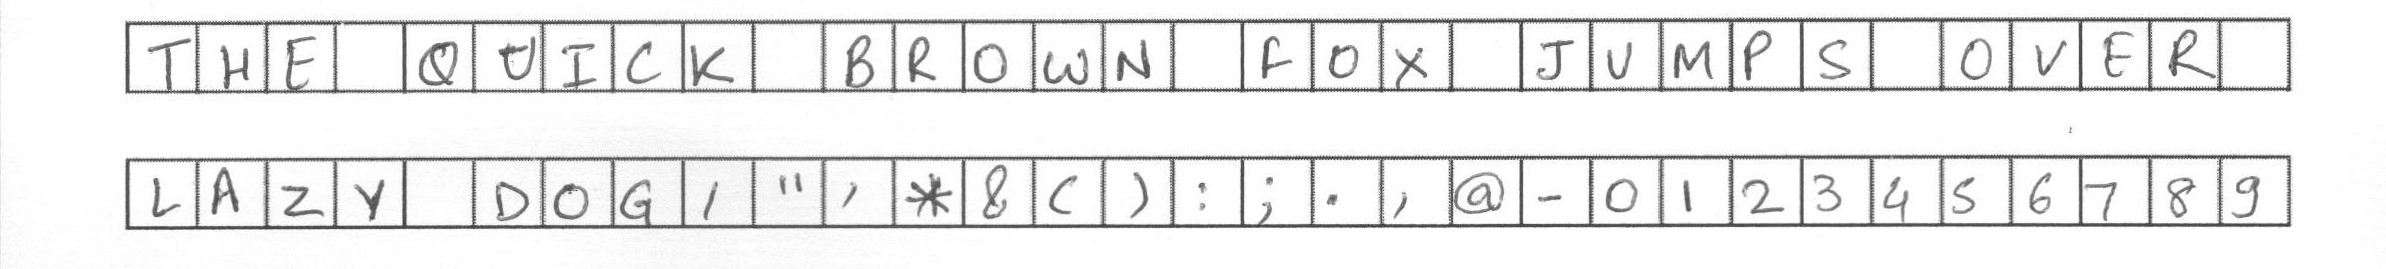 THE QUICK BROWN FOX JUMPS OVER
LAZY DOG/"'*&():;.,@-0123456789